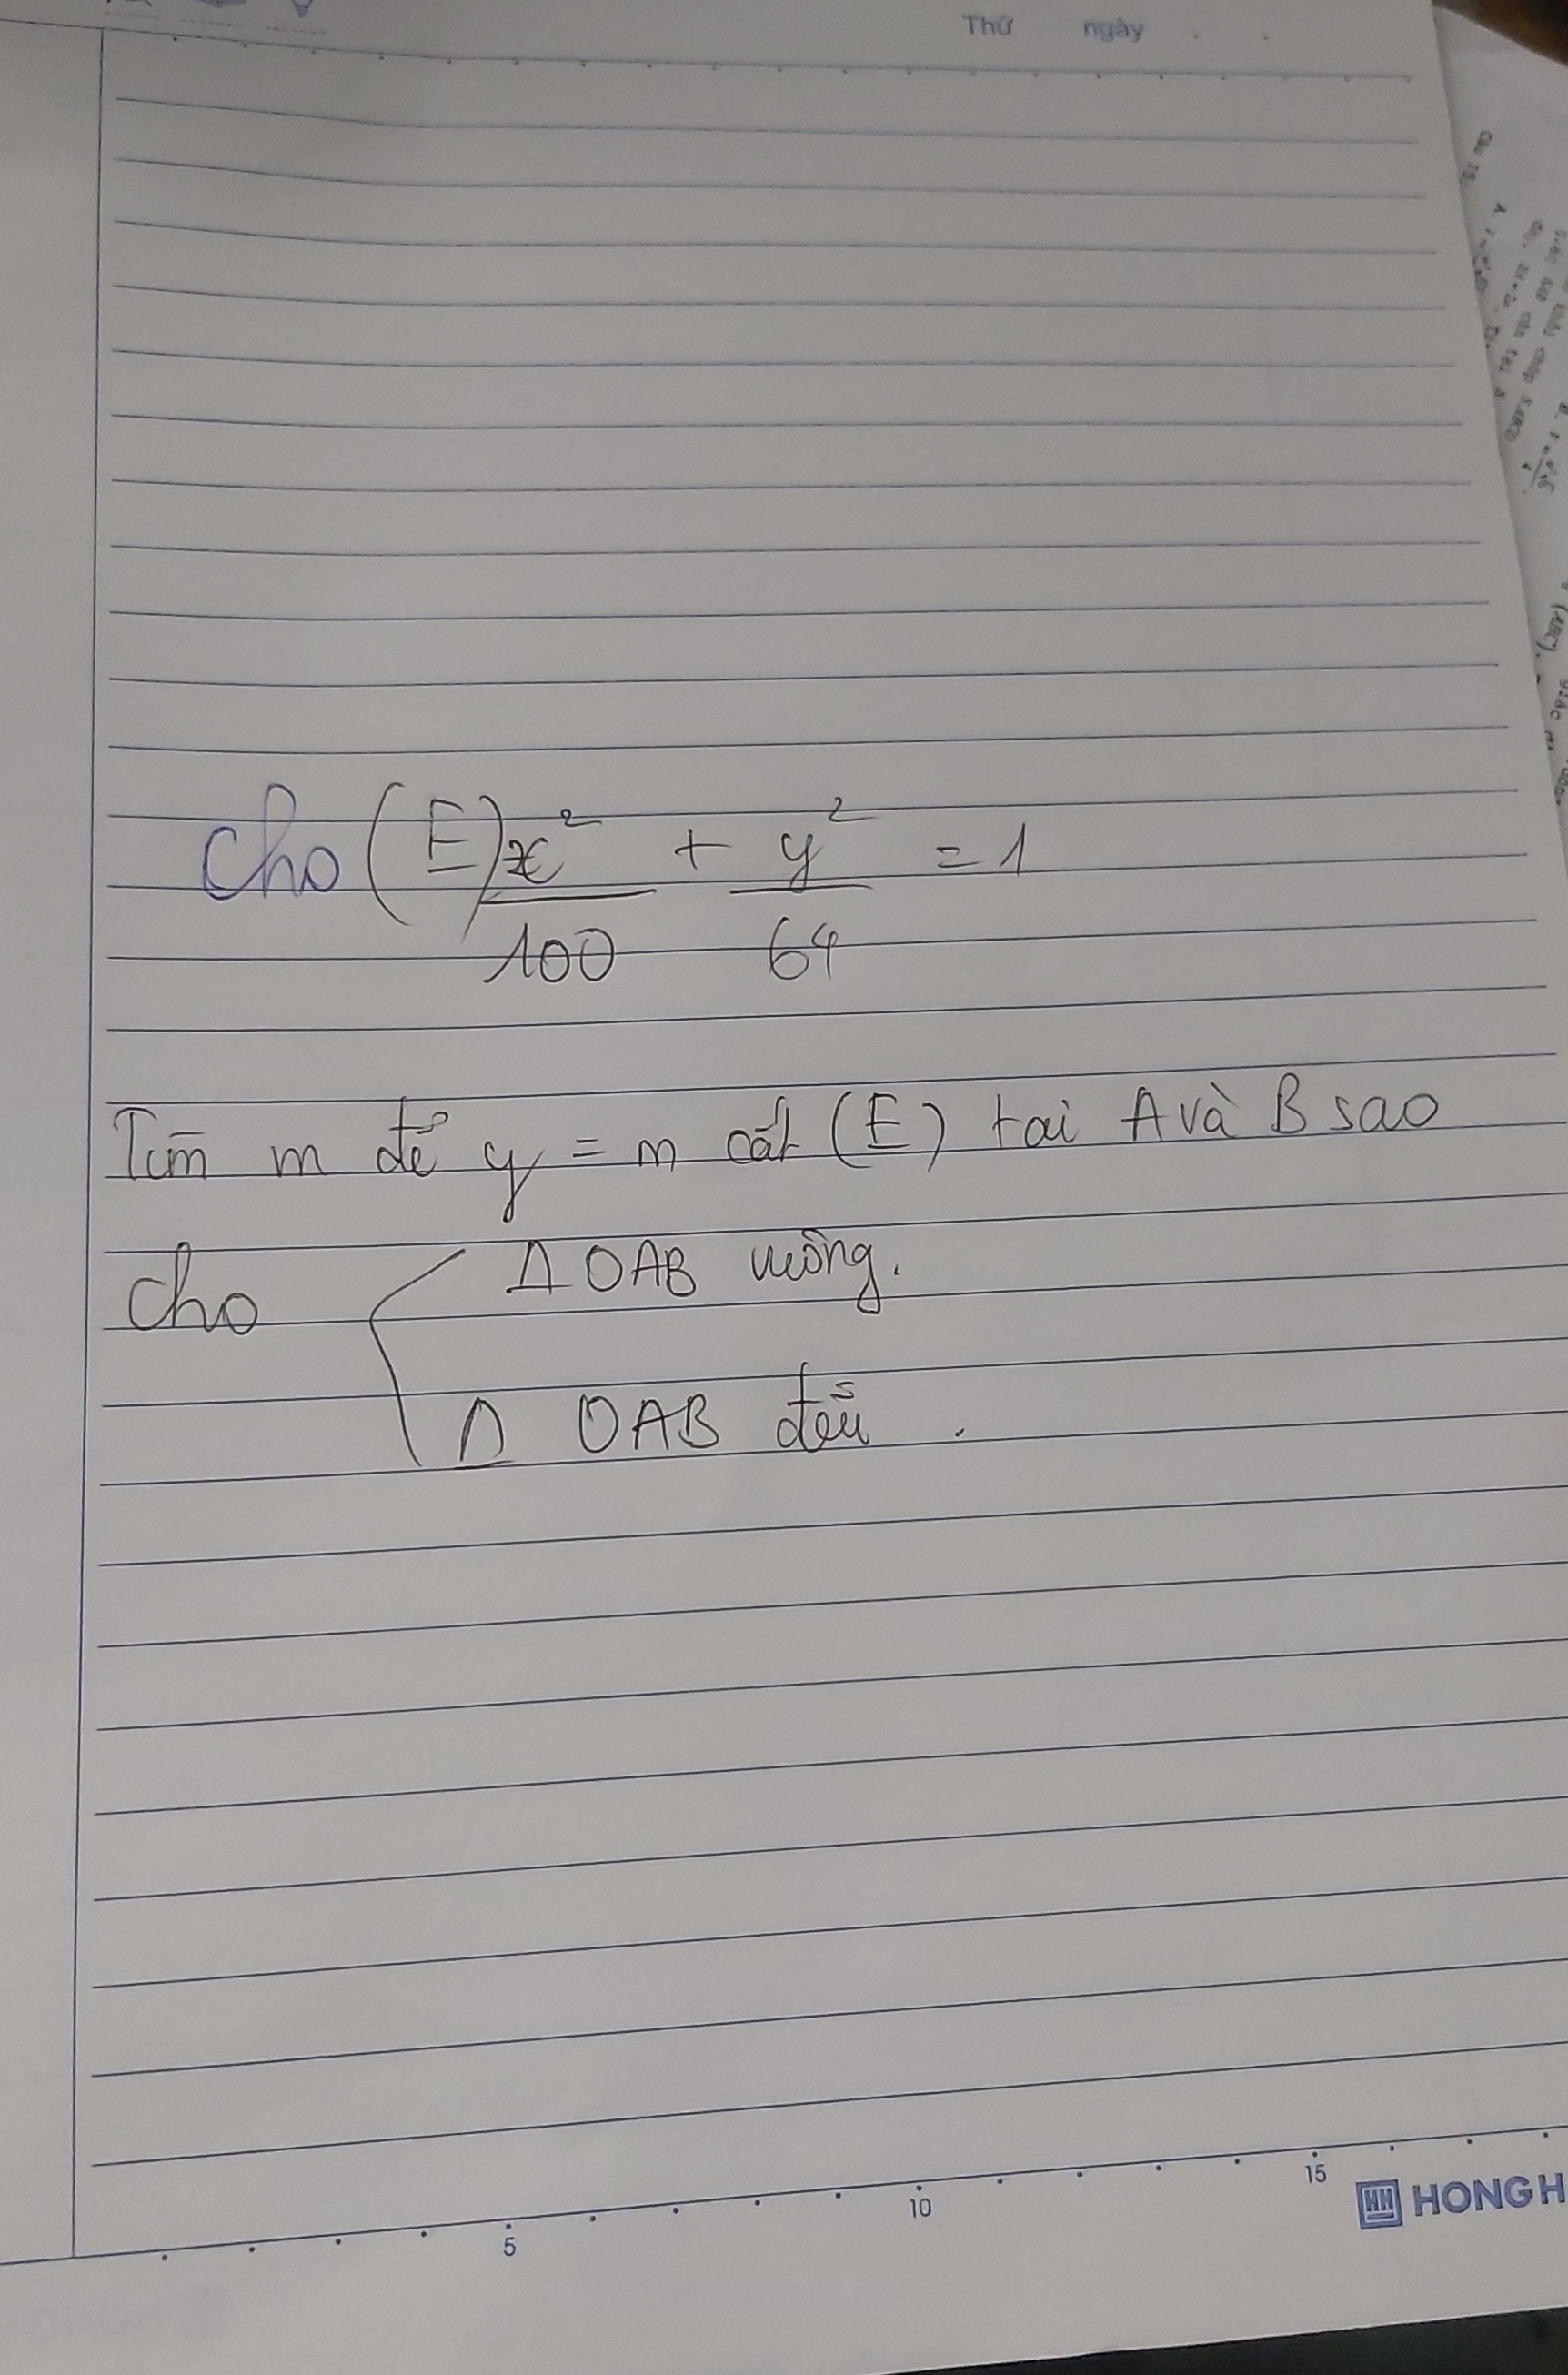 Thứ ngày
Cho (E) x² + y² = 1
100 64
Tìm m để y = m cắt (E) tai A và B sao
cho Δ OAB vuông.
Δ OAB đều .
5 10 15
HH HONG H